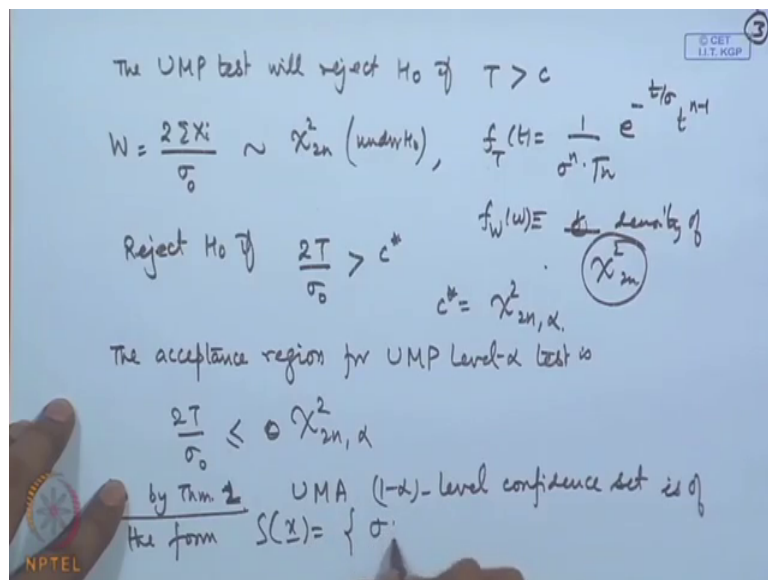 3
© CET
I.I.T. KGP
The UMP test will reject H₀ if T > c
W = 2ΣXi / σ₀ ~ χ²₂ₙ (under H₀), f_T(t) = 1 / (σⁿ · Γn) e^(-t/σ) t^(n-1)
f_W(w) ≡ density of
Reject H₀ if 2T / σ₀ > c* χ²₂ₙ
c* = χ²₂ₙ,α.
The acceptance region for UMP level-α test is
2T / σ₀ ≤ χ²₂ₙ,α
by Thm. 1 UMA (1-α)-level confidence set is of
the form S(x) = { σ:
NPTEL